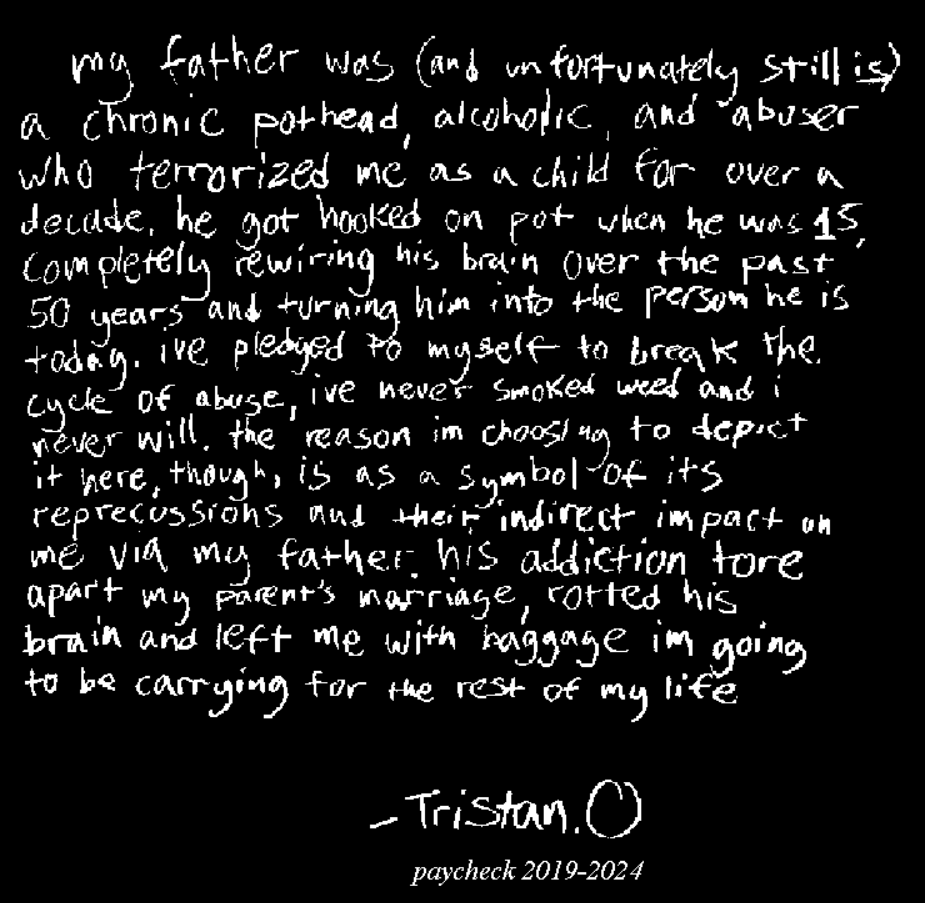 my father was (and unfortunately still is)
a chronic pothead, alcoholic, and abuser
who terrorized me as a child for over a
decade. he got hooked on pot when he was 15,
completely rewiring his brain over the past
50 years and turning him into the person he is
today. ive pledged to myself to break the
cycle of abuse, ive never smoked weed and i
never will. the reason im choosing to depict
it here, though, is as a symbol of its
reprecussions and their indirect impact on
me via my father. his addiction tore
apart my parent's marriage, rotted his
brain and left me with baggage im going
to be carrying for the rest of my life
- Tristan. O
paycheck 2019-2024